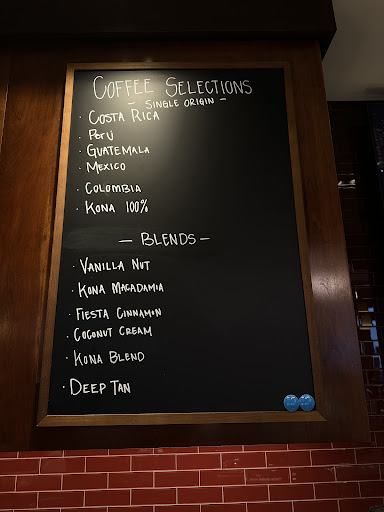 COFFEE SELECTIONS
- SINGLE ORIGIN -
· COSTA RICA
· PERU
· GUATEMALA
· MEXICO
· COLOMBIA
· KONA 100%
- BLENDS -
· VANILLA NUT
· KONA MACADAMIA
· FIESTA CINNAMON
· COCONUT CREAM
· KONA BLEND
· DEEP TAN